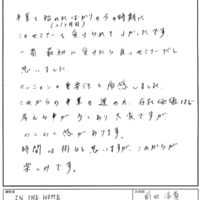 事業を始めればかりの今の時期に
(2ヶ月目)
このセミナーを受けられてよかったです。
一番最初に受けたら良いセミナーだと
思いました。
ビジョンの重要性を痛感しました。
これからの事業の進め方、存在価値など
考える事が多くあり大変ですが
わくわく感があります。
時間は掛ると思いますが、これからが
楽しみです。
IN THE HOME